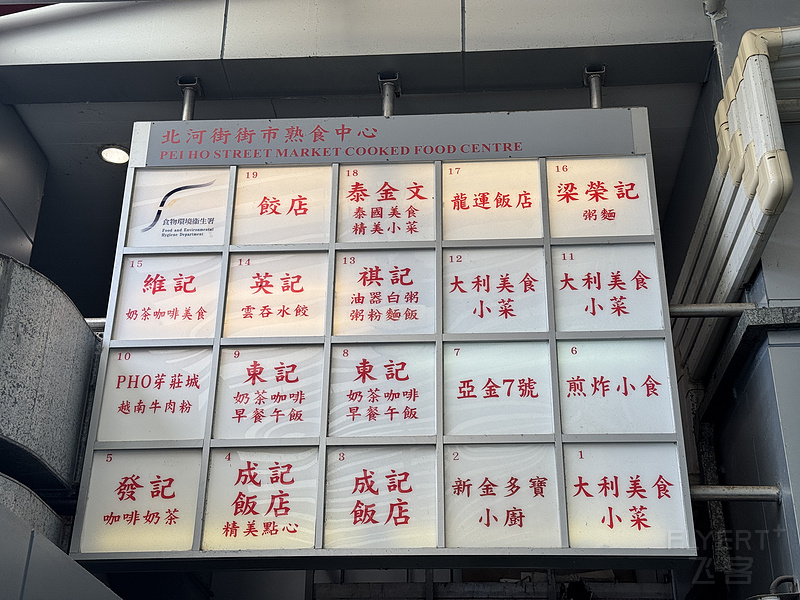 北河街街市熟食中心
PEI HO STREET MARKET COOKED FOOD CENTRE
食物環境衞生署
Food and Environmental
Hygiene Department
19
餃店
18
泰金文
泰國美食
精美小菜
17
龍運飯店
16
梁榮記
粥麵
15
維記
奶茶咖啡美食
14
英記
雲吞水餃
13
祺記
油器白粥
粥粉麵飯
12
大利美食
小菜
11
大利美食
小菜
10
PHO芽莊城
越南牛肉粉
9
東記
奶茶咖啡
早餐午飯
8
東記
奶茶咖啡
早餐午飯
7
亞金7號
6
煎炸小食
5
發記
咖啡奶茶
4
成記
飯店
精美點心
3
成記
飯店
2
新金多寶
小廚
1
大利美食
小菜
FLYERT+
飞客